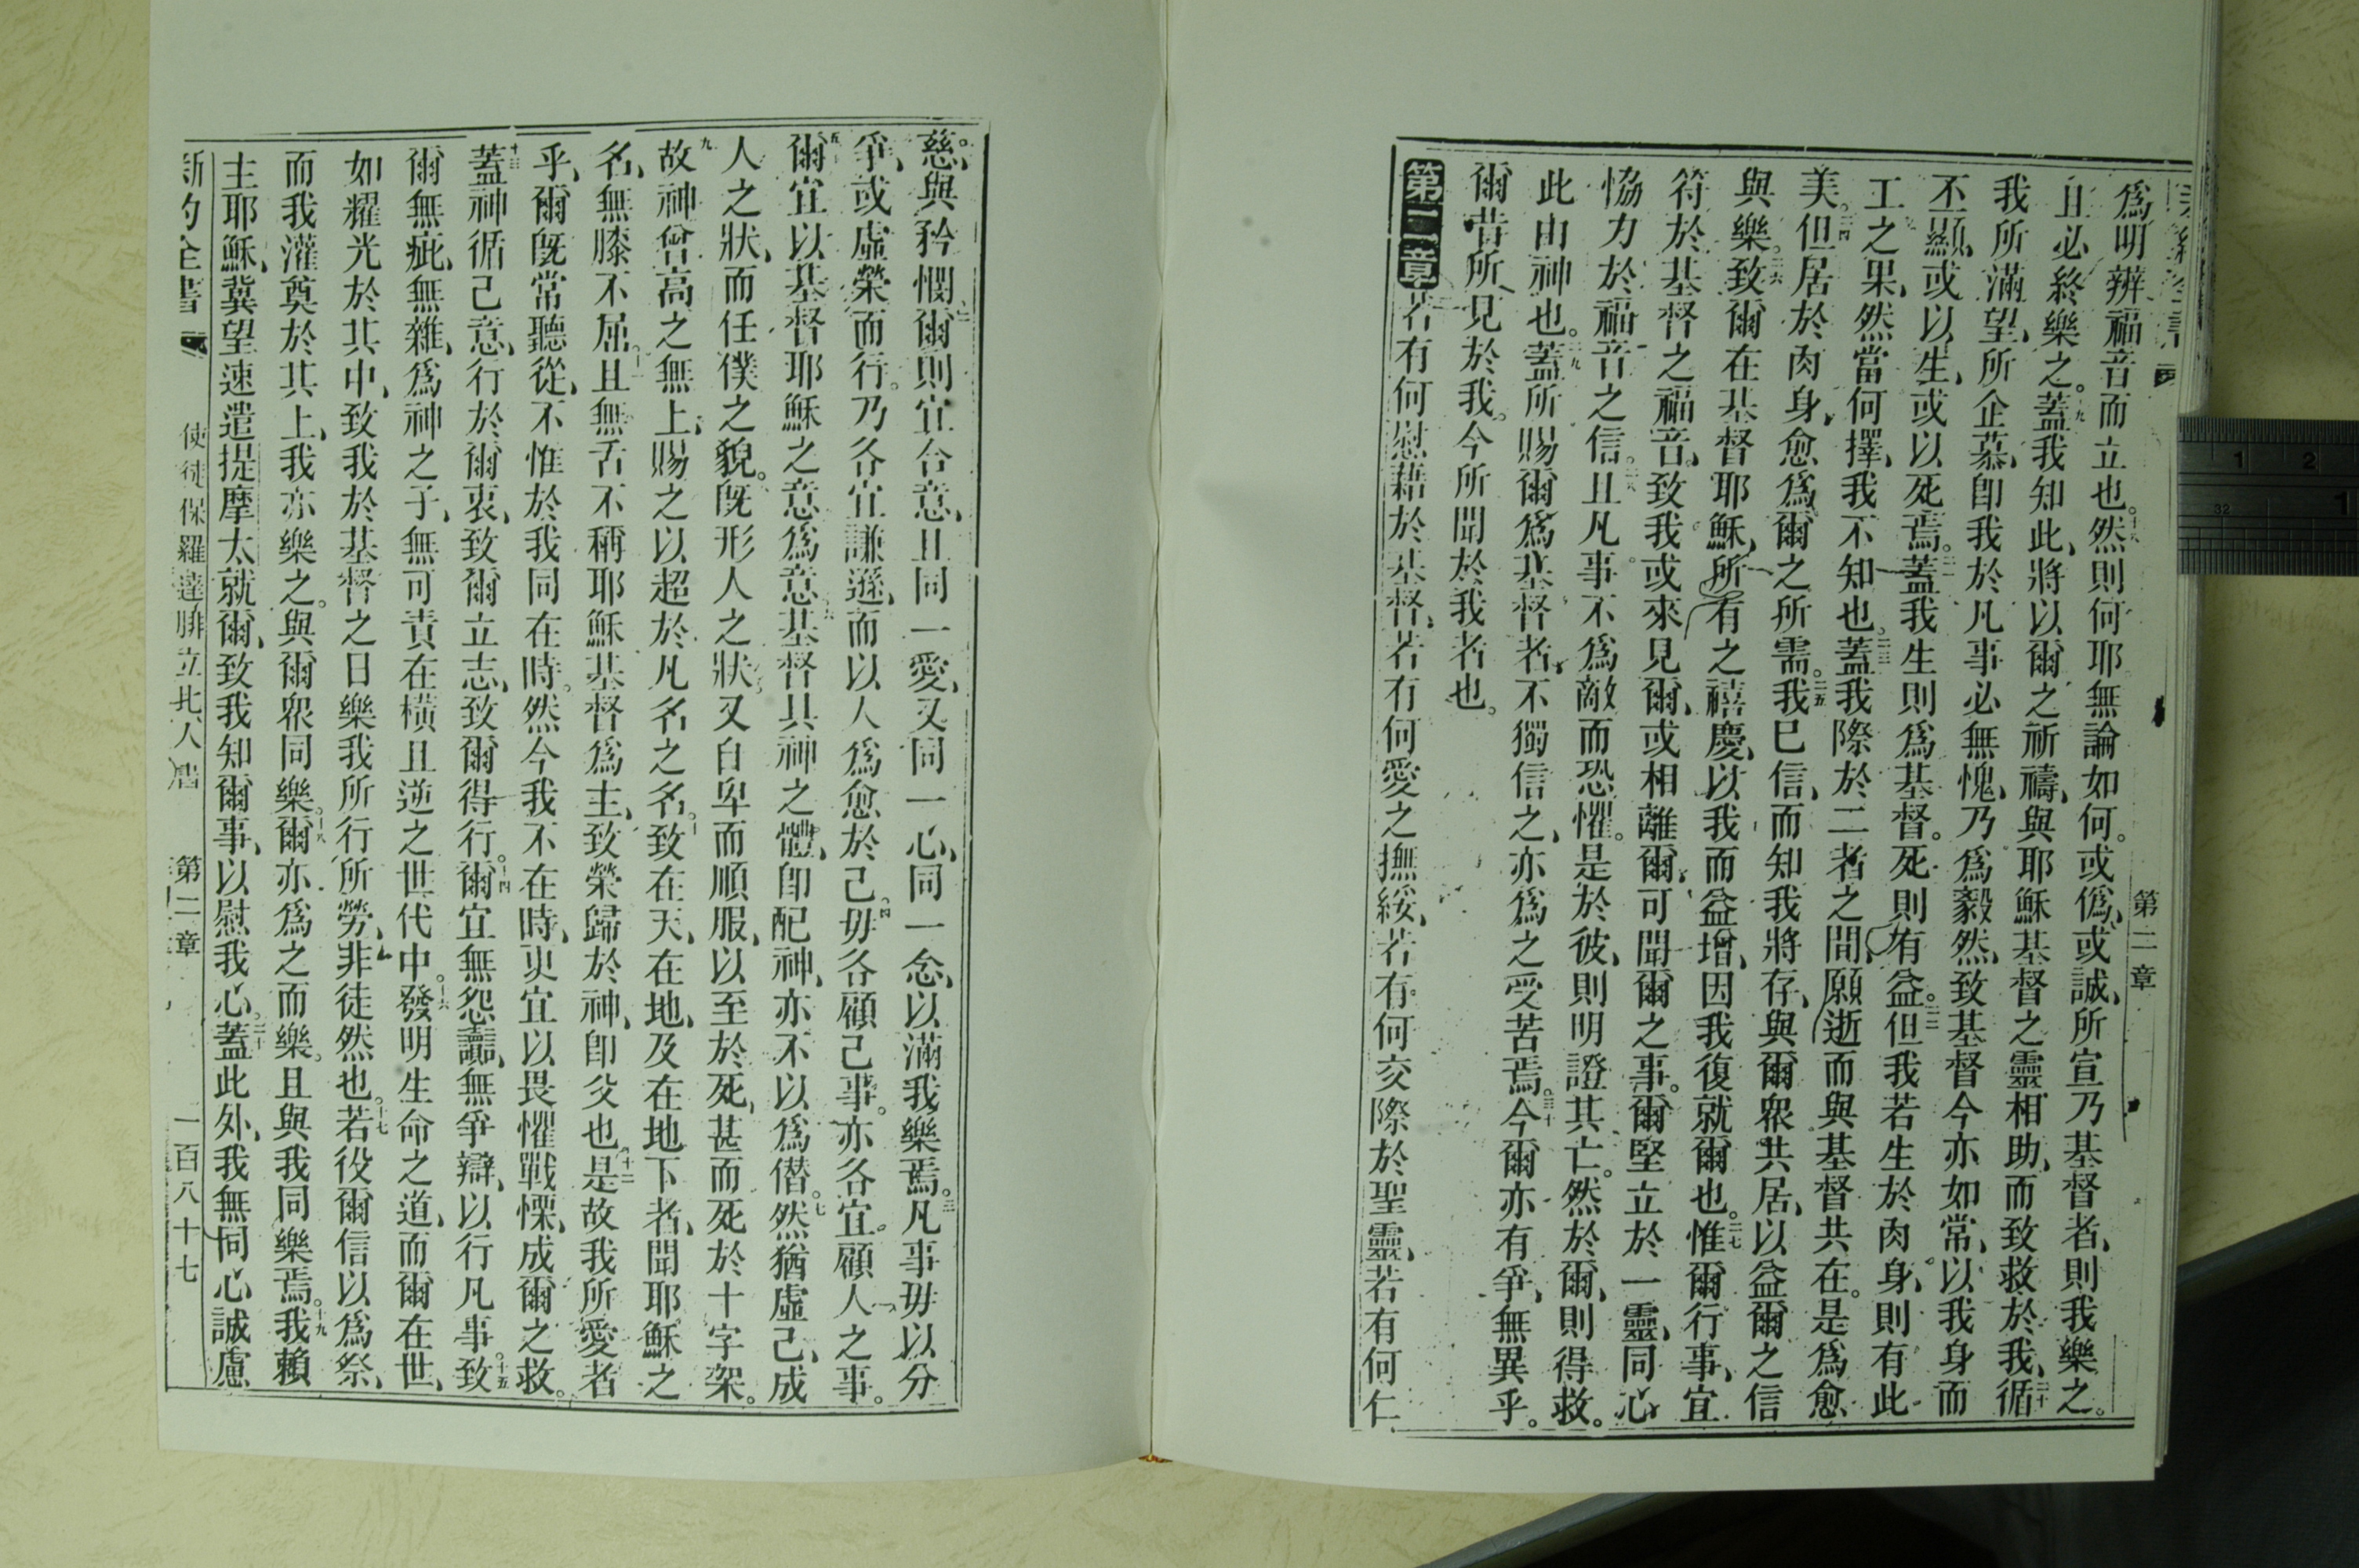 第二章
爲明辨福音而立也。十八然則何耶無論如何。或僞、或誠、所宣乃基督者、則我樂之。
且必終樂之。十九蓋我知此、將以爾之祈禱、與耶穌基督之靈相助、而致救於我、二十循
我所滿望、所企慕、卽我於凡事必無愧、乃爲毅然、致基督今亦如常、以我身而
丕顯、或以生、或以死焉。二一蓋我生則爲基督。死則有益。二二但我若生於肉身、則有此
工之果、然當何擇、我不知也。二三蓋我際於二者之間、願逝而與基督共在。是爲愈
美。二四但居於肉身、愈爲爾之所需。二五我已信、而知我將存、與爾眾共居、以益爾之信
與樂。二六致爾在基督耶穌、所有之禧慶、以我而益增、因我復就爾也。二七惟爾行事、宜
符於基督之福音。致我或來見爾、或相離爾、可聞爾之事。爾堅立於一靈、同心
恊力於福音之信。二八且凡事不爲敵而恐懼。是於彼、則明證其亡。然於爾、則得救。
此由神也。二九蓋所賜爾爲基督者、不獨信之、亦爲之受苦焉。三十今爾亦有爭、無異乎。
爾昔所見於我。今所聞於我者也。
第二章 若有何慰藉於基督、若有何愛之撫綏、若有何交際於聖靈、若有何仁
慈。與矜憫、二爾則宜合意、且同一愛、又同一心、同一念、以滿我樂焉。三凡事毋以分
爭、或虛榮而行。乃各宜謙遜、而以人爲愈於己。四毋各顧己事。亦各宜顧人之事。
五爾宜以基督耶穌之意爲意、六基督具神之體、卽配神、亦不以爲僭。七然猶虛己、成
人之狀、而任僕之貌。八旣形人之狀、又自卑而順服、以至於死、甚而死於十字架。
九故神曾高之無上、賜之以超於凡名之名。十致在天、在地、及在地下者、聞耶穌之
名、無膝不屈。十一且無舌不稱耶穌基督爲主、致榮歸於神、卽父也。十二是故我所愛者
乎、爾旣常聽從、不惟於我同在時。然今我不在時、更宜以畏懼戰慄、成爾之救。
十三蓋神循己意、行於爾衷、致爾立志、致爾得行。十四爾宜無怨讟、無爭辯、以行凡事。十五致
爾無疵、無雜、爲神之子、無可責在橫且逆之世代中。十六發明生命之道、而爾在世、
如耀光於其中、致我於基督之日樂我所行所勞、非徒然也。十七若役爾信以爲祭、
而我灌奠於其上、我亦樂之。與爾眾同樂。十八爾亦爲之而樂。且與我同樂焉。十九我賴
主耶穌、冀望速遣提摩太就爾、致我知爾事、以慰我心。二十蓋此外、我無同心誠慮
新約全書 使徒保羅達腓立比人書 第二章 一百八十七